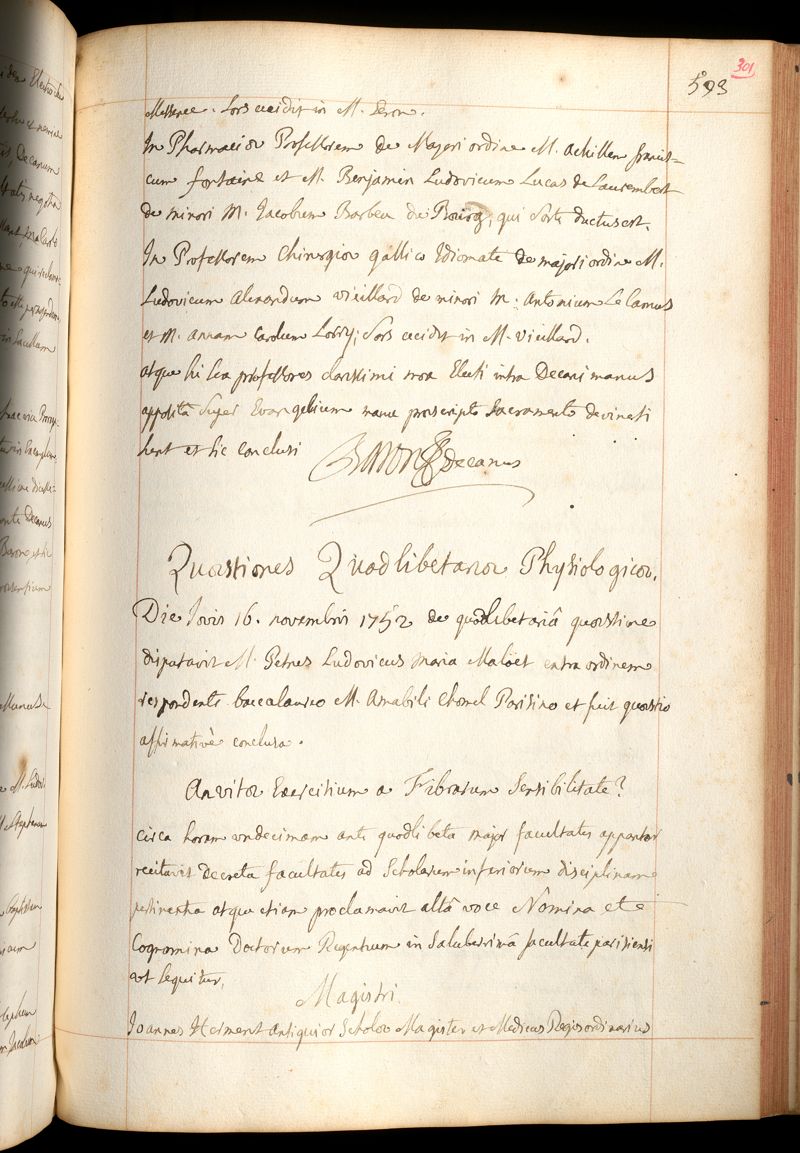 301
593
Messence. Sors cecidit in M. Seron.
In Pharmaciæ Professorem de Majori ordine M. Achillem francis=
cum fontaine et M. Benjamin Ludovicum Lucas de Laurembert
de minori M. Jacobum Barbeu du Bourg, qui sorte ductus est.
In Professorem Chirurgiæ gallico Idiomate de majori ordine M.
Ludovicum Alexandrum vieillard de minori M. Antonium Le Camus
et M. annam Carolum Lorry; Sors cecidit in M. vieillard.
atque hi sex professores clarissimi mox Electi intra Decani manus
apposita super Evangelium manu præscripto sacramento devincti
sunt et sic conclusi Baron Decanus
Quæstiones Quodlibetariæ Physiologicæ.
Die Jovis 16. novembris 1752 de quodlibetariâ quæstione
disputavit M. Petrus Ludovicus Maria Maloët extra ordinem
respondente baccalaureo M. Amabili Chomel Parisino et fuit quæstio
affirmativè conclusa.
An vitæ Exercitium a Fibrarum Sensibilitate?
circa horam undecimam ante quodlibeta major facultatis apparitor
recitavit decreta facultatis ad Scholarum inferiorum disciplinam
pertinentia atque etiam proclamavit altâ voce Nomina et
Cognomina Doctorum Regentium in Saluberrimâ facultate parisiensi
ut sequitur,
Magistri.
Joannes Herment Antiquior Scholæ Magister et Medicus Regis ordinarius